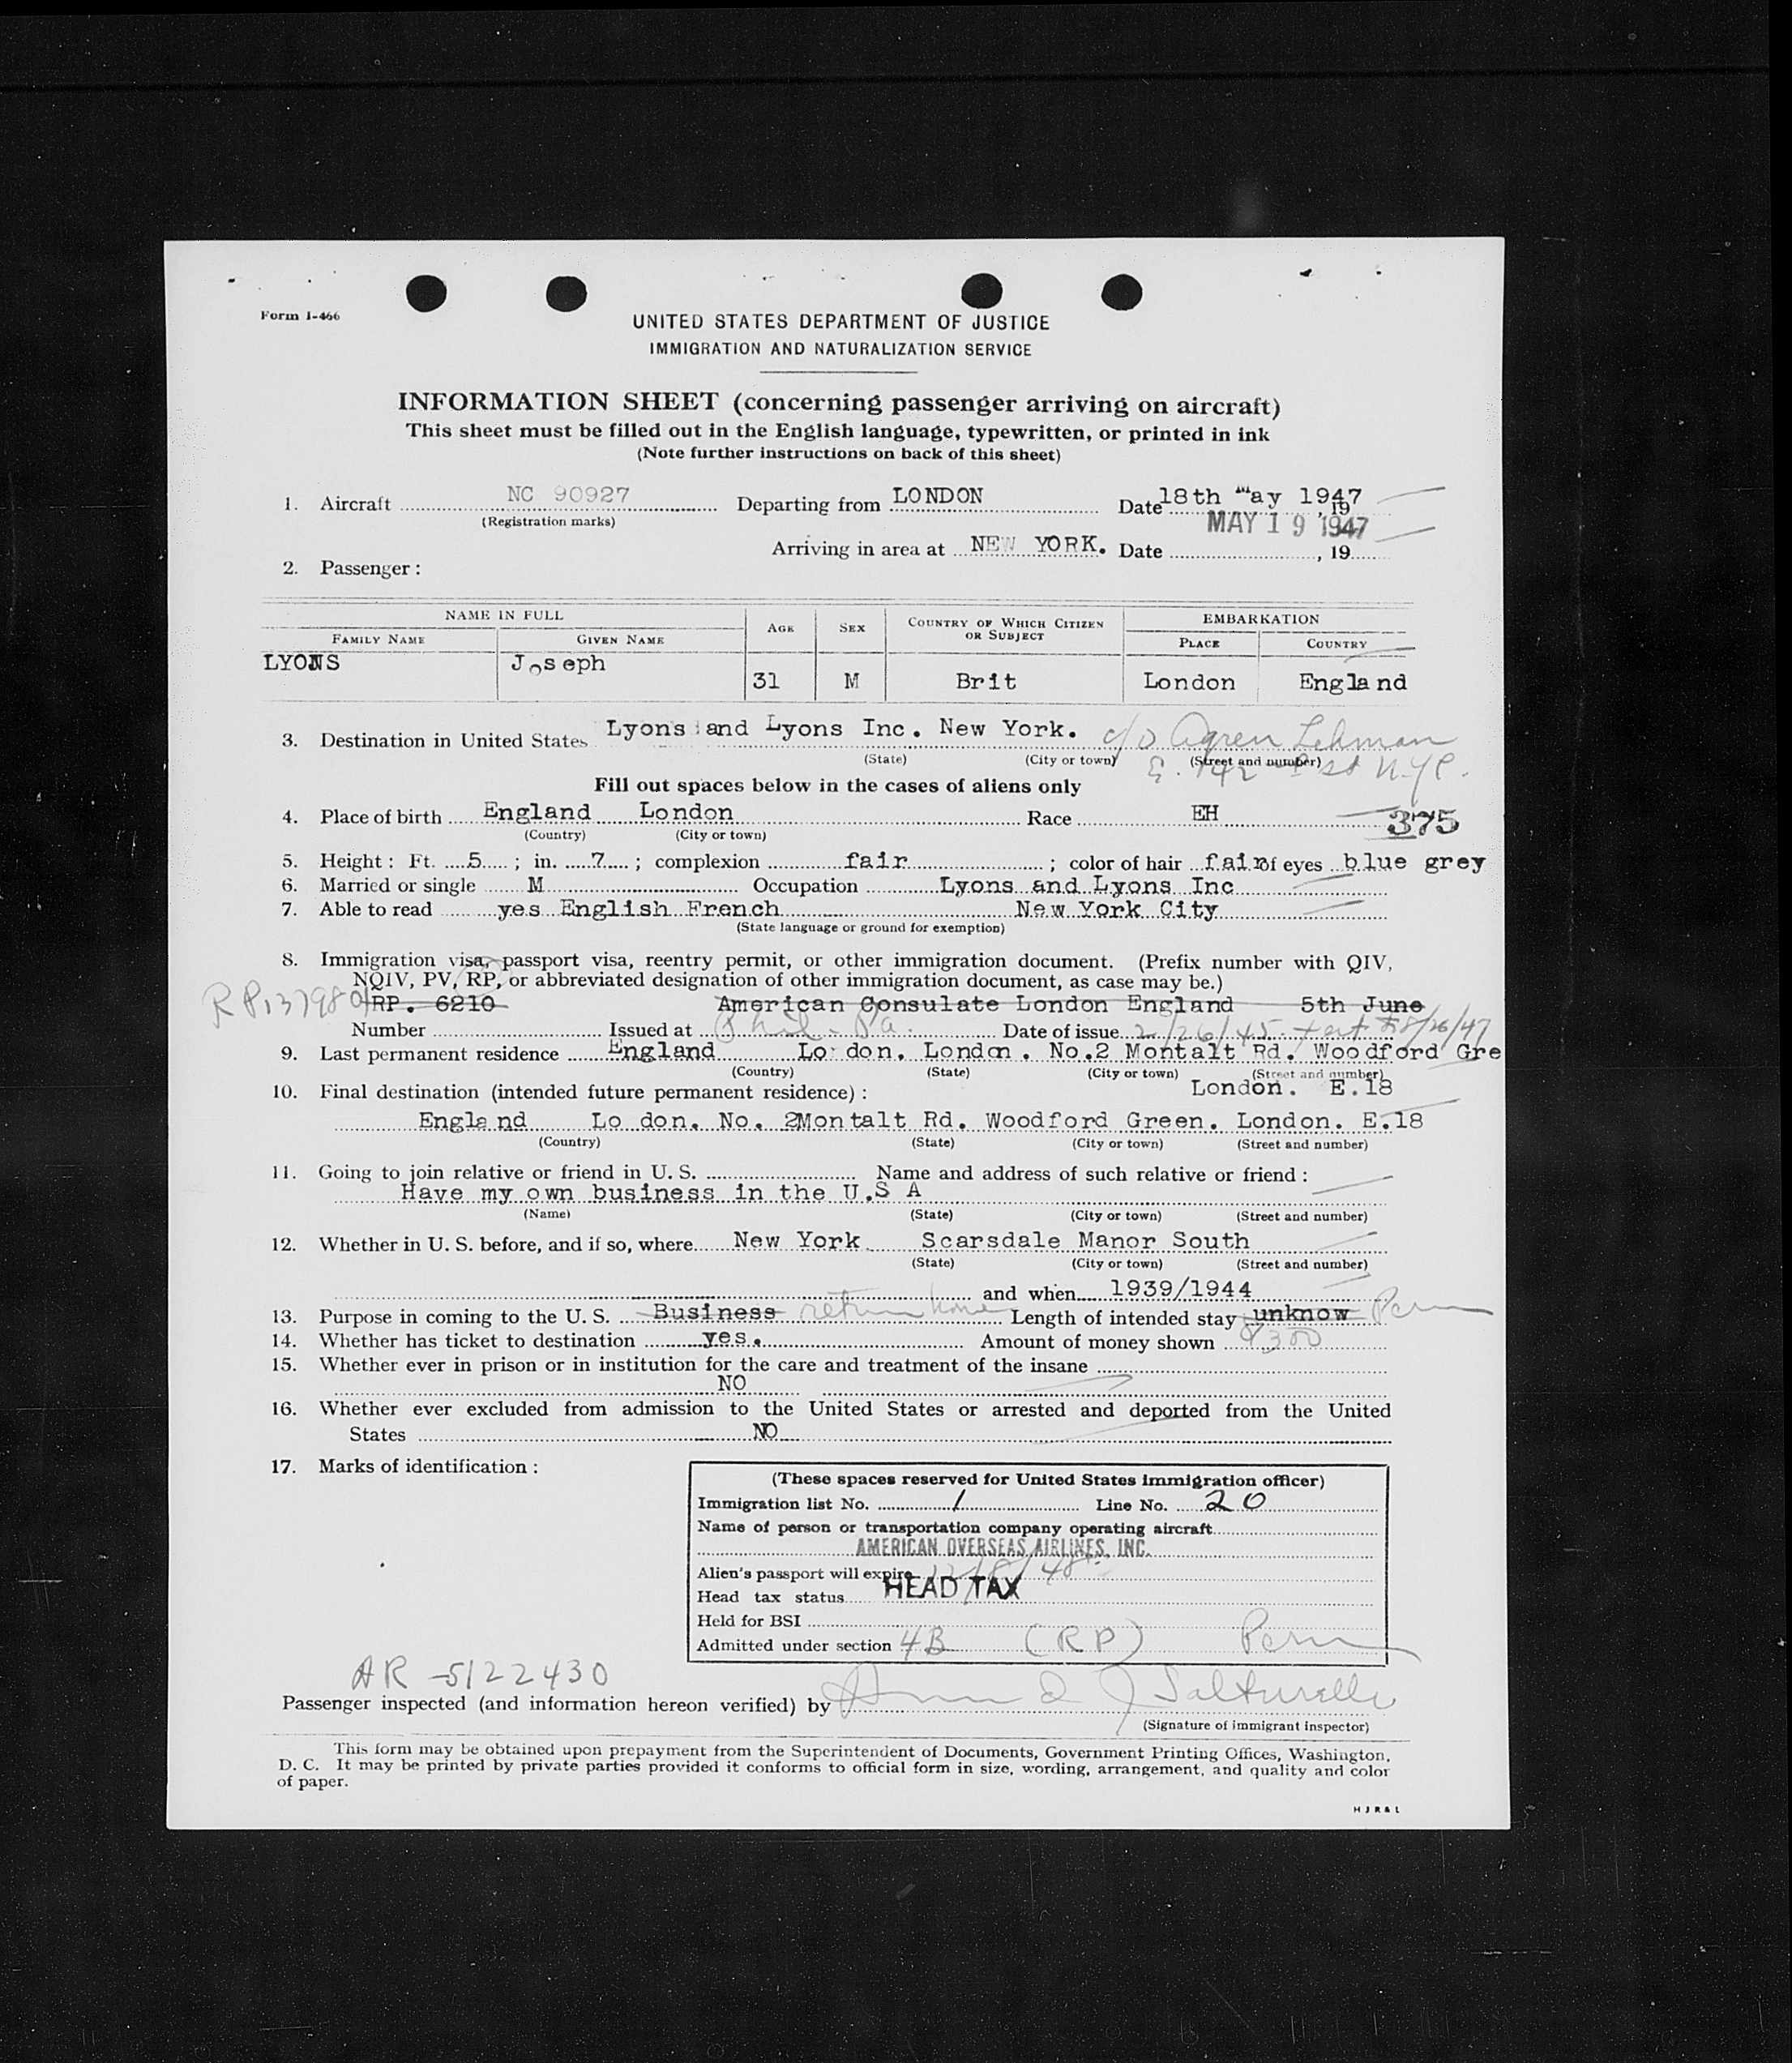 Form I-466
UNITED STATES DEPARTMENT OF JUSTICE
IMMIGRATION AND NATURALIZATION SERVICE
INFORMATION SHEET (concerning passenger arriving on aircraft)
This sheet must be filled out in the English language, typewritten, or printed in ink
(Note further instructions on back of this sheet)
1. Aircraft NC 90927 Departing from LONDON Date 18th May 1947, 19
(Registration marks) MAY 19 1947
Arriving in area at NEW YORK. Date , 19
2. Passenger:
NAME IN FULL AGE SEX COUNTRY OF WHICH CITIZEN OR SUBJECT EMBARKATION
FAMILY NAME GIVEN NAME PLACE COUNTRY
LYONS Joseph 31 M Brit London England
3. Destination in United States Lyons and Lyons Inc. New York. c/o Agren Lehman
(State) (City or town) (Street and number)
E. 42 st N.Y.C.
Fill out spaces below in the cases of aliens only
4. Place of birth England London Race EH 375
(Country) (City or town)
5. Height: Ft. 5; in. 7; complexion fair; color of hair fair of eyes blue grey
6. Married or single M Occupation Lyons and Lyons Inc
7. Able to read yes English French New York City
(State language or ground for exemption)
8. Immigration visa, passport visa, reentry permit, or other immigration document. (Prefix number with QIV,
NQIV, PV, RP, or abbreviated designation of other immigration document, as case may be.)
RP. 6210 American Consulate London England 5th June
Number Issued at Phil - Pa. Date of issue 2/26/45 8/26/47
9. Last permanent residence England Lo don. London. No.2 Montalt Rd. Woodford Gre
(Country) (State) (City or town) (Street and number)
10. Final destination (intended future permanent residence): London. E.18
England Lo don. No. 2Montalt Rd. Woodford Green. London. E.18
(Country) (State) (City or town) (Street and number)
11. Going to join relative or friend in U. S. Name and address of such relative or friend:
Have my own business in the U.S A
(Name) (State) (City or town) (Street and number)
12. Whether in U. S. before, and if so, where New York Scarsdale Manor South
(State) (City or town) (Street and number)
and when 1939/1944
13. Purpose in coming to the U. S. Business return home Length of intended stay unknow Perm
14. Whether has ticket to destination yes. Amount of money shown $300
15. Whether ever in prison or in institution for the care and treatment of the insane
NO
16. Whether ever excluded from admission to the United States or arrested and deported from the United
States NO
17. Marks of identification:
(These spaces reserved for United States immigration officer)
Immigration list No. 1 Line No. 20
Name of person or transportation company operating aircraft
AMERICAN OVERSEAS AIRLINES, INC.
Alien's passport will expire
Head tax status HEAD TAX
Held for BSI
Admitted under section 4B (RP) Perm
AR-5122430
Passenger inspected (and information hereon verified) by
(Signature of immigrant inspector)
This form may be obtained upon prepayment from the Superintendent of Documents, Government Printing Offices, Washington,
D. C. It may be printed by private parties provided it conforms to official form in size, wording, arrangement, and quality and color
of paper.
H J R & L